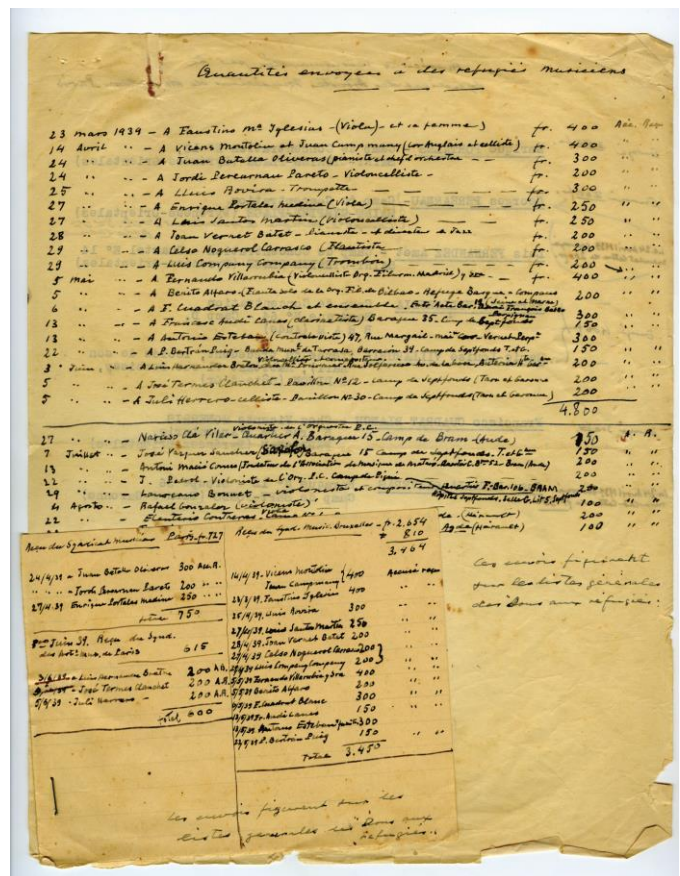 Quantités envoyées à des refugiés musiciens
23 mars 1939 - A Faustino Mª Yglesias - (Viola) - et sa femme) fr. 400 Acc. Reçu
14 Avril " - A Vicens Montoliu et Juan Campmany (cor Anglais et celliste) fr. 400 " "
24 " " - A Juan Batalla Oliveras (pianiste et chef d'orchestre - - fr. 300 " "
24 " " - A Jordi Percurnau Pareto - Violoncelliste - fr. 200 " "
25 " " - A Lluis Rovira - Trompette - fr. 300 " "
27 " " - A Enrique Portoles Medina (Viola) fr. 250 " "
27 " " - A Luis Santos Martin (Violoncelliste) fr. 250 " "
28 " " - A Joan Vernet Batet - Pianiste - et directeur de Jazz fr. 200 " "
29 " " - A Celso Noguerol Carrasco (Flautiste fr. 200 " "
29 " " - A Luis Company Company (Trombón) fr. 200 " "
5 Mai - A Fernando Villarrubia (Violoncellist Org. Madrid) y fr. 400 " "
5 " - A Benito Alfaro - de la Org. Fil. de Bilbao - Refuge Basque - 200 " "
6 " - A F. Cuadrat Blanch et ensemble. (Seine et Marne) 300 "
13 " - A Francisco Audi Canes (clarinetiste) Baraque 35. Camp de Septfonds 150 "
13 " - A Antonio Esteban (contrabaviste) 47, Rue 300 "
22 " - A P. Bertrán Puig - Banda Mun. de Tarrasa, Barracón 39 - Camp de Septfonds, T. et G. 150 " "
3 Juin - A Luis Hernandez Bretón 200 " "
5 " - A José Termes Clanchet - Pavillon Nº 12 - Camp de Septfonds (Tarn et Garonne 200 " "
5 " - A Juli Herrero - celliste - Pavillon Nº 30 - Camp de Septfonds (Tarn et Garonne) 200 "
4.800
27 " " - Narciso Clá Viler - violoniste de l'Orquestre B.C. Quartier A. Baraque 15 - Camp de Bram - (Aude) 150 A. R.
7 Juillet - José Vazquez Sanchez Baraque 15 Camp de Septfonds. T. et G. 150 " "
13 " - Antoni Macià Comes de l'Association de Musique 200 " "
22 " - J. - Violoniste de l'Org. P.C. Camp de 200 " "
29 " - Bonnet - violoniste et compositeur BRAM " "
4 Agosto - Rafael Gonzalez (violoniste) 100 " "
22 " - Eleuterio Contreras 200 " "
Agde (Hérault) 100 " "
Ces envois figurent
sur les listes générales
des Dons aux réfugiés.
Reçu du Syndicat Musicien Paris fr. 727
24/4/39 - Juan Batalla Oliveras 300 Acc. R.
" " " - Jordi Percurnau Pareto 200 " "
27/4/39 Enrique Portoles Medina 250 " "
total 750
Juin 39. Reçu du Synd.
des Art. Mus. de Paris 615
3/6/39 - Luis Hernandez Bretón 200 A.R.
- José Termes Clanchet 200 A.R.
5/6/39 - Juli Herrero - 200 " "
total 600
Reçu du Synd. Music. Bruxelles - fr. 2.654
810
3.464
14/4/39 - Vicens Montoliu
Juan Campmany 400 Accusé reçu
23/3/39. Faustino Iglesias 400 " "
25/4/39. Lluis Rovira 300 " "
27/4/39 Luis Santos Martin 250 " "
28/4/39. Joan Vernet Batet 200 " "
29/4/39 Celso Noguerol Carrasco 200
29/4/39 Luis Company Company 200 " "
5/5/39 Fernando Villarrubia y 400 " "
5/5/39 Benito Alfaro 200 " "
F. Cuadrat Blanc 300 "
13/5/39 Fr. Audi Canes 150 "
13/5/39 Antonio Esteban 300
22/5/39 P. Bertrán Puig 150 " "
Total 3.450
Les envois figurent sur les
listes generales des Dons aux
réfugiés.